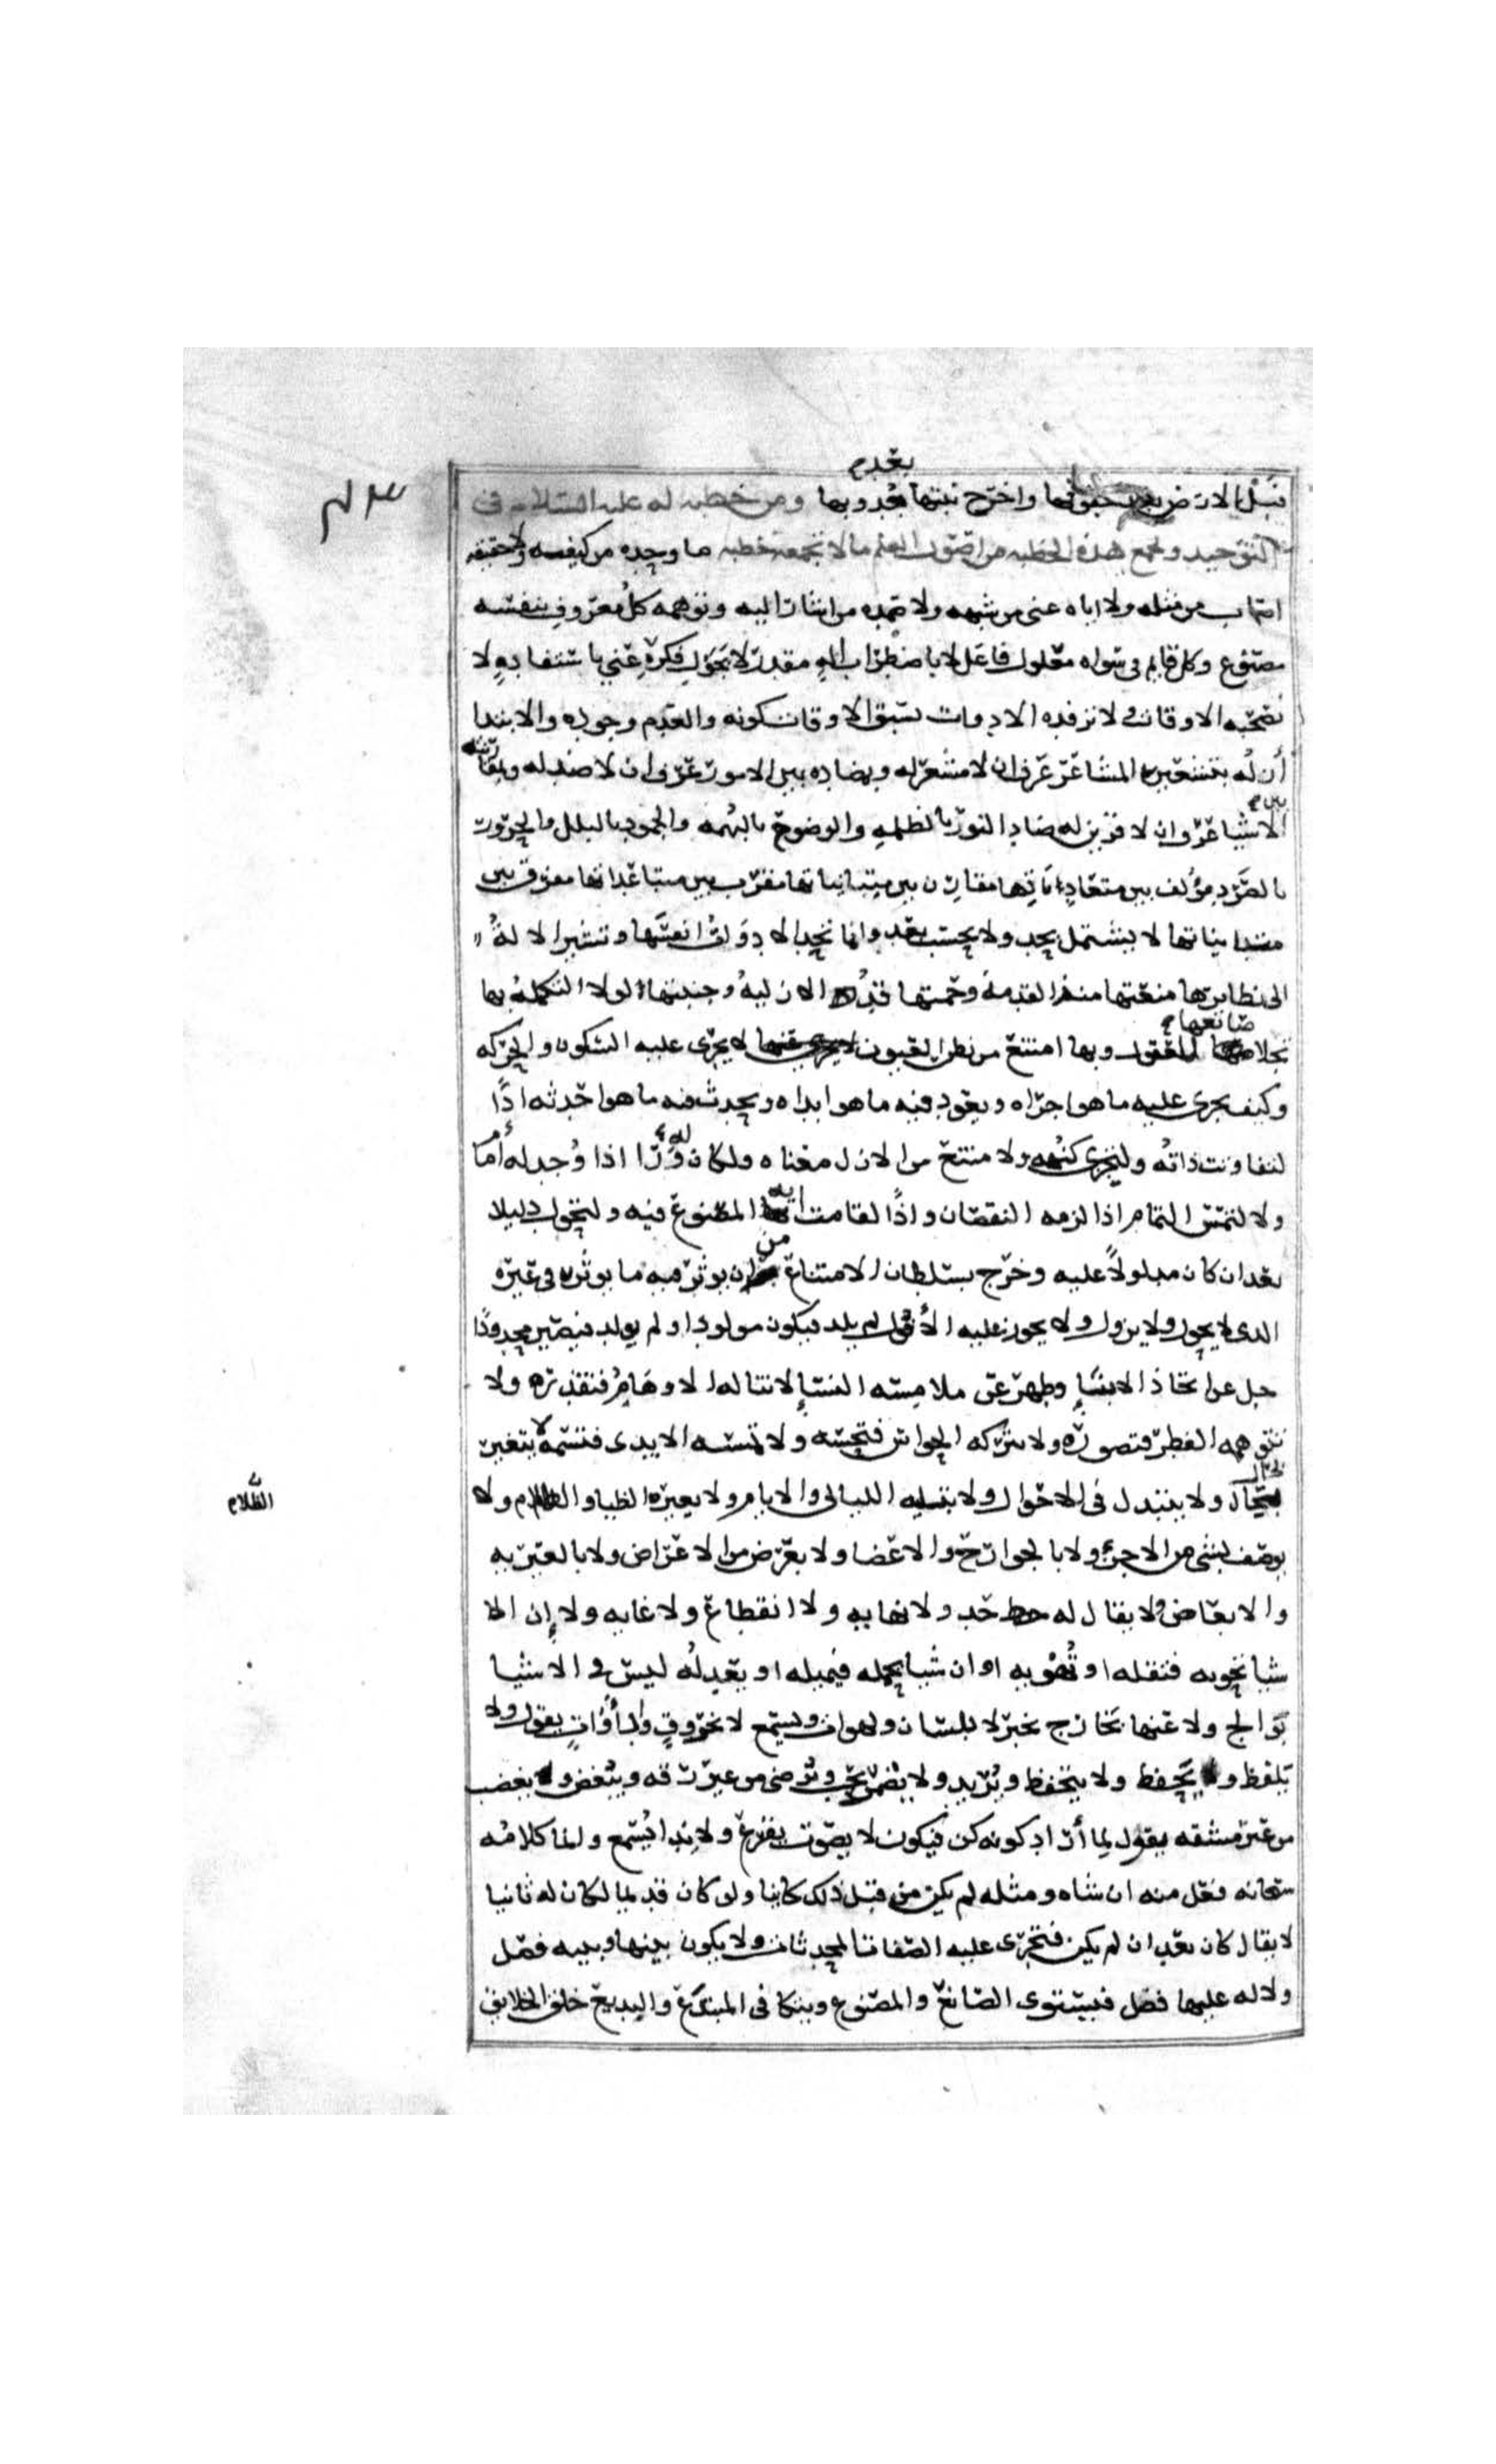 بعد
فبل الارض بعد جفوفها واخرج نبتها بعد جدوبها ومن خطبه له عليه السلام في
التوحيد وتجمع هذه الخطبه من اصول العلم ما لا تجمعه خطبه ما وحده من كيفه ولا حقيقته
اصاب من مثله ولا اياه عنى من شبهه ولا صمده من اشار اليه وتوهمه كل معروف بنفسه
مصنوع وكل قايم في سواه معلول فاعل لا باضطراب اله مقدر لا بجول فكرة غني لا باستفادةٍ لا
تصحبه الاوقات ولا ترفده الادوات سبق الاوقات كونه والعدم وجوده والابتدا
أزله بتشعيره المشاعر عرف ان لا مشعر له وبمضادته بين الامور عرف ان لا ضد له وبمقارنته
بين
الاشيا عرف ان لا قرين له ضاد النور بالظلمه والوضوح بالبهمه والجمود بالبلل والحرور
بالصرد مؤلف بين متعادياتها مقارن بين متبايناتها مقرب بين متباعداتها مفرق بين
متدانياتها لا يشتمل بحد ولا يحسب بعد وانما تحد الادوات انفسها وتشير الالة
الى نظايرها منعتها منذ القدمة وحمتها قد الازلية وجنبتها لولا التكملة بها
صانعها
تجلا للعقول وبها امتنع من نظر العيون لا يجرى عليه السكون والحركه
وكيف يجرى عليه ما هو اجراه ويعود فيه ما هو ابداه ويحدث فيه ما هو احدثه اذًا
لتفاوتت ذاته ولتجزى كنهه ولامتنع من الازل معناه ولكان له ورا اذا وجد له أما
ولالتمس التمام اذا لزمه النقصان واذًا لقامت اية المصنوع فيه ولتحول دليلا
بعد ان كان مدلولاً عليه وخرج بسلطان الامتناع من ان يوثر فيه ما يوثر في غيره
الذى لا يحول ولا يزول ولا يجوز عليه الأفول لم يلد فيكون مولودا ولم يولد فيصير محدودًا
جل عن اتخاذ الابناءِ وطهر عن ملامسة النساءِ لا تناله الاوهامُ فتقدره ولا
تتوهمه الفطن فتصوره ولا تدركه الحواس فتحسه ولا تلمسه الايدى فتمسه لا يتغير
بحال ولا يتبدل في الاحوال ولا تبليه الليالى والايام ولا يغيره الضيا والظلام ولا
الظلام
يوصف بشى من الاجزاء ولا بالجوارح والاعضا ولا بعرض من الاعراض ولا بالغيريه
والابعاض ولا يقال له حد ولا نهايه ولا انقطاع ولا غايه ولا إن الا
شيا تحويه فتقله او تُهْويه او ان شيا يحمله فيميله او يعدله ليس في الاشيا
بوالج ولا عنها بخارج يخبر لا بلسان ولهوات ويسمع لا بخروقٍ وأدواتٍ يقول ولا
يلفظ و يحفظ ولا يتحفظ ويُريد ولا يضمر يحب ويرضى من غير رقه ويبغض و يغضب
من غير مشقه يقول لما أراد كونه كن فيكون لا بصوت يقرع ولا بندا يُسمع وانما كلامُه
سبحانه فعل منه انشاه ومثله لم يكن من قبل ذلك كاينا ولو كان قديما لكان له ثانيا
لا يقال كان بعد ان لم يكن فتجرى عليه الصفات المحدثات ولا يكون بينها وبينه فصل
ولا له عليها فضل فيستوى الصانع والمصنوع ويتكافى المبتدَع والبديع خلق الخلايق